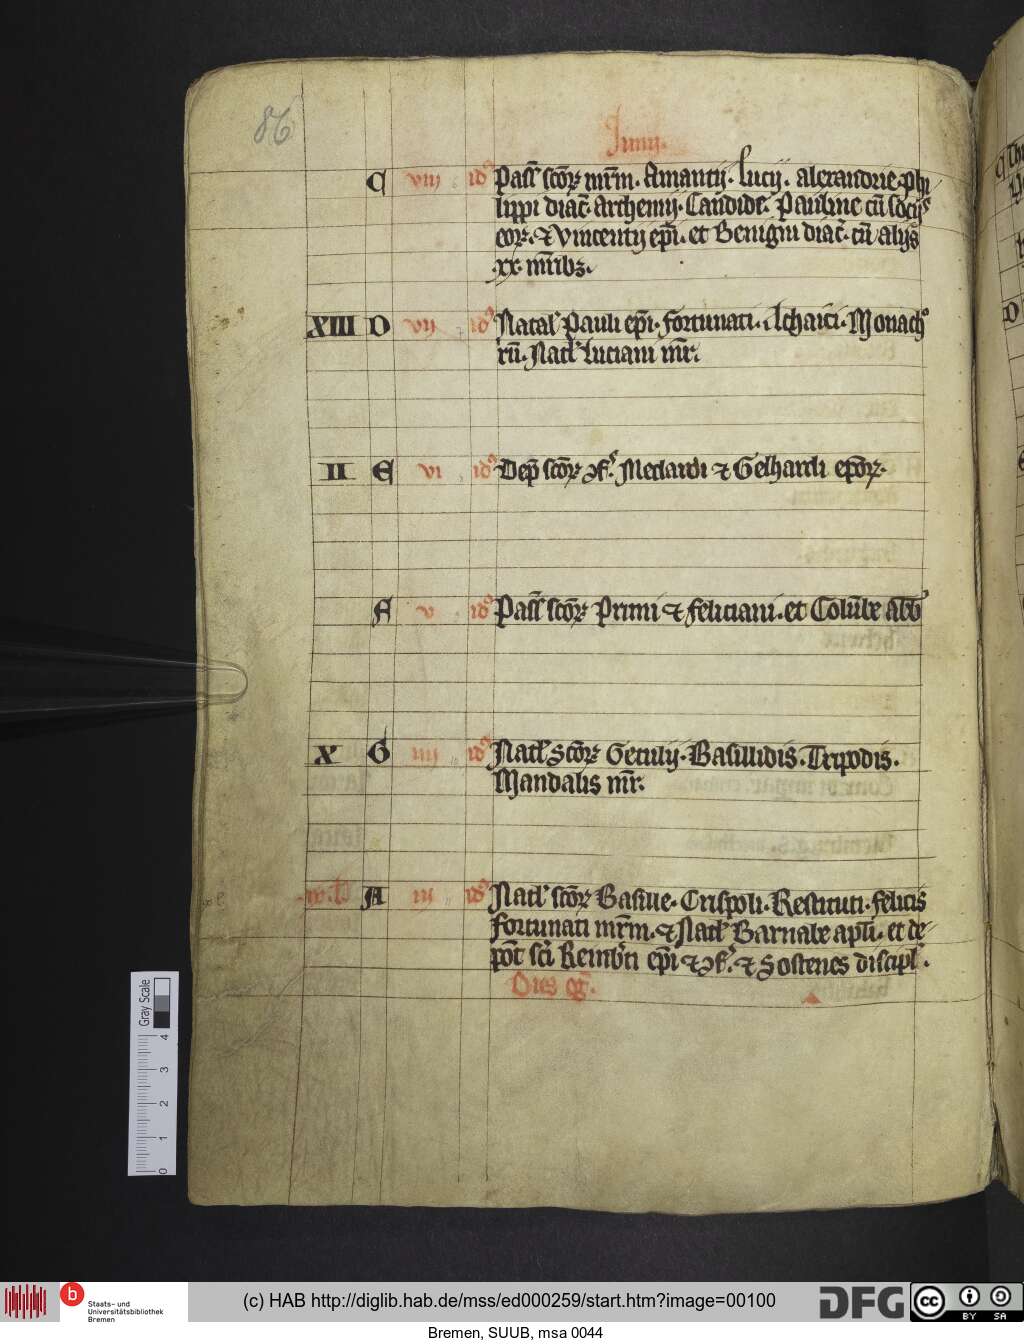 86
Junij.
C viij id⁹ Pass̄ sc̄oꝝ mr̄m. Amantij. Lucij. alexandrie. phi
lippi diac̄. Archemij. Candide. Pauline cū socijs
eoꝝ. ⁊ Vincentij ep̄i. et Benigni diac̄. cū alijs
xx. mr̄ibꝫ.
XIII D vij id⁹ Natal' Pauli ep̄i. fortunati. Achaici. Monach⁹
rū. Natl' Luciani mr̄.
II E vi id⁹ Dep̄ sc̄oꝝ ꝯf'. Medardi ⁊ Gelhardi ep̄oꝝ.
F v id⁹ Pass̄ sc̄oꝝ Primi ⁊ feliciani. et Colūbe abb̄
X G iiij id⁹ Natl' Sc̄oꝝ Getulij. Basillidis. Tripodis.
Mandalis mr̄.
A iij id⁹ Natl' sc̄oꝝ Basille. Crispoli. Restituti. felicis
fortunati mr̄m. ⁊ Natl' Barnabe apl̄i. et de
pōt sc̄i Reimb'ti ep̄i ⁊ ꝯf'. ⁊ Sostenes discipl'.
Dies eḡ.
Gray Scale
4
3
2
1
0
b Staats- und
Universitätsbibliothek
Bremen
(c) HAB http://diglib.hab.de/mss/ed000259/start.htm?image=00100
DFG
cc BY SA
Bremen, SUUB, msa 0044